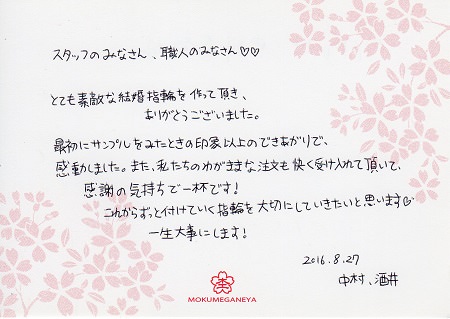 スタッフのみなさん、職人のみなさん♡♡
とても素敵な結婚指輪を作って頂き、
ありがとうございました。
最初にサンプルをみたときの印象以上のできあがりで、
感動しました。また、私たちのわがままな注文も快く受け入れて頂いて、
感謝の気持ちで一杯です!
これからずっと付けていく指輪を大切にしていきたいと思います♡
一生大事にします!
2016.8.27
中村、酒井
MOKUMEGANEYA